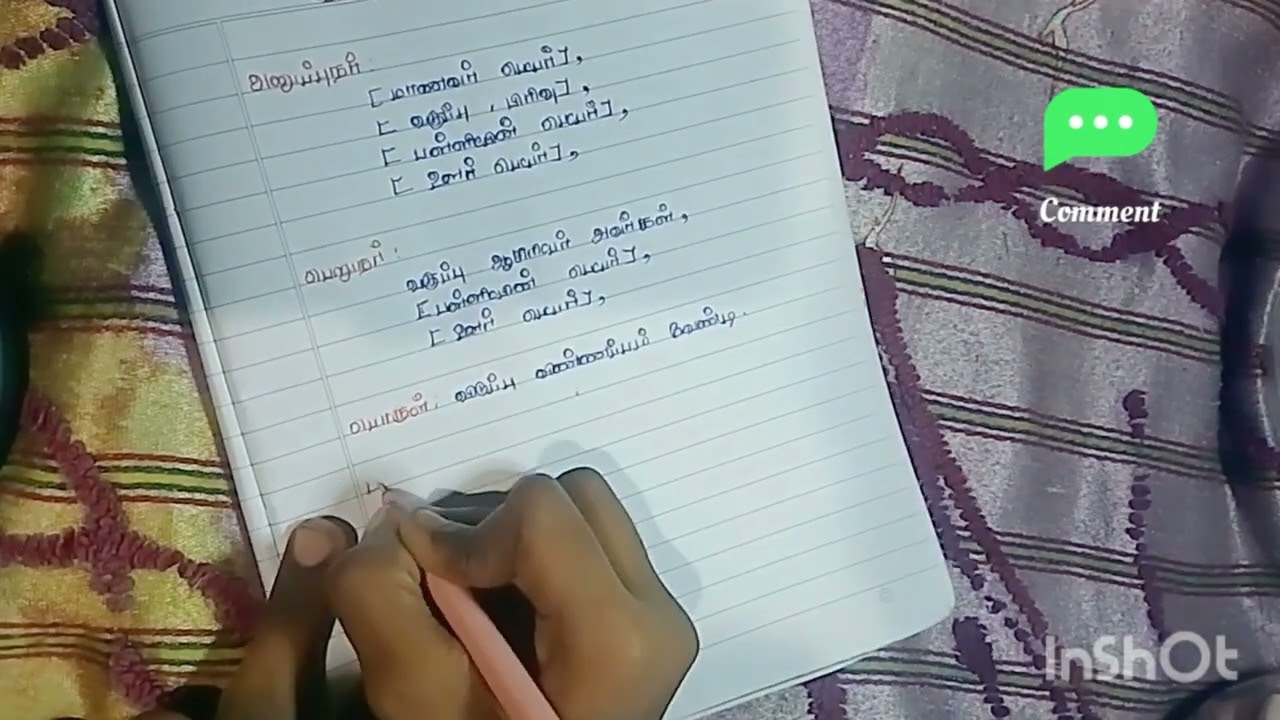 அனுப்புநர்.
[ மாணவர் பெயர் ],
[ வகுப்பு , பிரிவு ],
[ பள்ளியின் பெயர் ],
[ ஊர் பெயர் ],
Comment
பெறுநர் .
வகுப்பு ஆசிரியர் அவர்கள் ,
[ பள்ளியின் பெயர் ],
[ ஊர் பெயர் ],
பொருள் . விடுப்பு விண்ணப்பம் வேண்டி .
InShOt